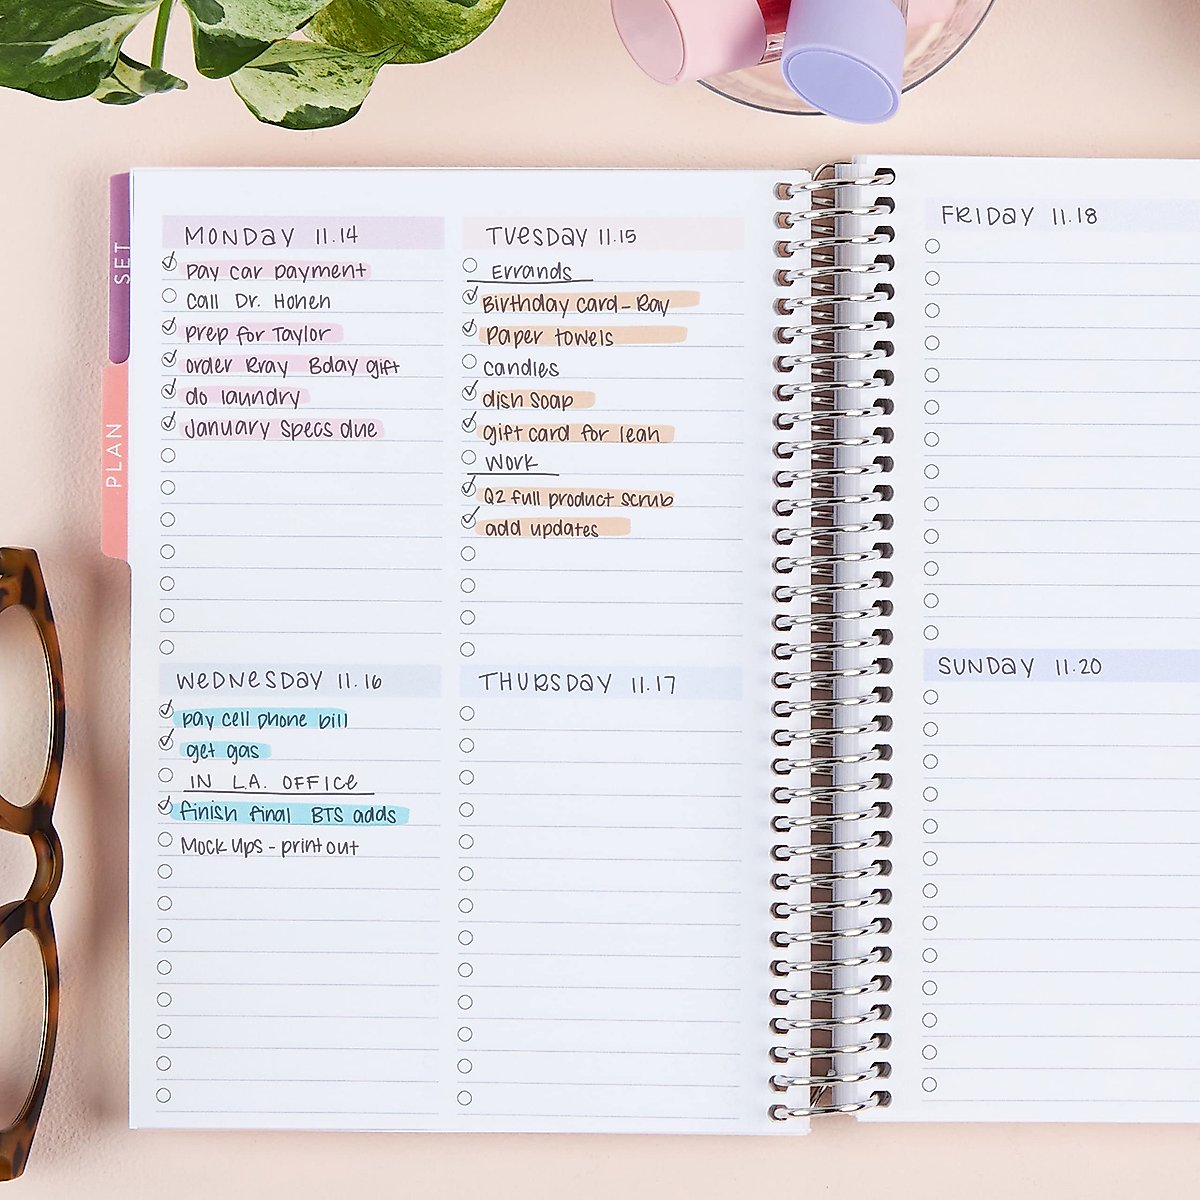 SET
PLAN
MONDAY 11.14
pay car payment
Call Dr. Honen
prep for Taylor
order Rray Bday gift
do laundry
January Specs due
TUESDAY 11.15
Errands
Birthday Card - Ray
Paper towels
Candles
dish Soap
gift card for leah
Work
Q2 full product scrub
add updates
WEDNESDAY 11.16
pay cell phone bill
get gas
IN L.A. OFFICE
finish final BTS adds
Mock Ups - print out
THURSDAY 11.17
FRIDAY 11.18
SUNDAY 11.20